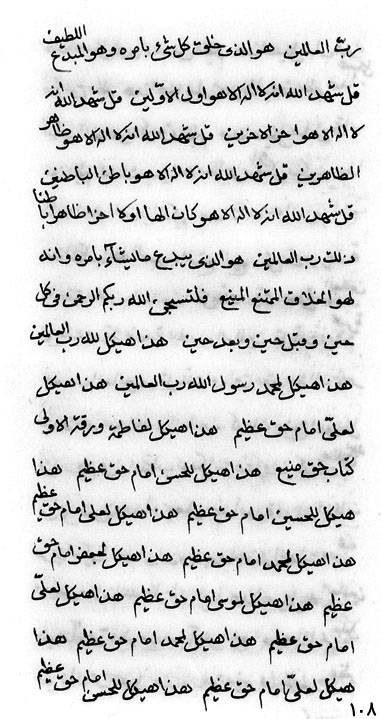 رب العالمين هو الذي خلق كل شيء بامره وهو المبدع اللطيف
قل شهد الله انه لا اله الا هو اول الاولين قل شهد الله انه
لا اله الا هو اخر الاخرين قل شهد الله انه لا اله الا هو ظاهر
الظاهرين قل شهد الله انه لا اله الا هو باطن الباطنين
قل شهد الله انه لا اله الا هو كان الها اولا اخرا ظاهرا باطنا
ذلك رب العالمين هو الذي يبدع ما يشاء بامره وانه
لهو الخلاق الممتنع المنيع فلتسبحن الله ربكم الرحمن في كل
حين وقبل حين وبعد حين هذا هيكل لله رب العالمين
هذا هيكل لمحمد رسول الله رب العالمين هذا هيكل
لعلي امام حق عظيم هذا هيكل لفاطمة ورقة الاولى
كتاب حق منيع هذا هيكل للحسن امام حق عظيم هذا
هيكل للحسين امام حق عظيم هذا هيكل لعلي امام حق عظيم
هذا هيكل لمحمد امام حق عظيم هذا هيكل لجعفر امام حق
عظيم هذا هيكل لموسى امام حق عظيم هذا هيكل لعلي
امام حق عظيم هذا هيكل لمحمد امام حق عظيم هذا
هيكل لعلي امام حق عظيم هذا هيكل للحسن امام حق عظيم
١٠٨